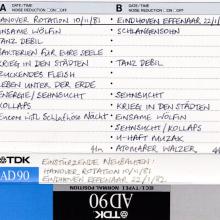 A DATE/TIME
NOISE REDUCTION ON OFF
HANOVER ROTATION 10/11/81
EINSAME WÖLFIN
TANZ DEBIL
BAKTERIEN FÜR EURE SEELE
KRIEG IN DEN STÄDTEN
ZUCKENDES FLEISH
LEBEN UNTER DER ERDE
ENERGIE / SEHNSUCHT
KOLLAPS
SCHLAFLOSE NÄCHT
B DATE/TIME
NOISE REDUCTION ON OFF
EINDHOVEN EFFENAAR 22/1/
SCHLANGENSOHN
TANZ DEBIL
SEHNSUCHT
KRIEG IN DEN STÄDTEN
EINSAME WÖLFIN
SEHNSUCHT / KOLLAPS
U-HAFT MUZAK
ATOMARER WALZER
TDK
AD90
EINSTÜRZENDE NEUBAUTEN:
HANOVER ROTATION 10/11/81
EINDHOVEN EFFENAAR 22/1/82
TDK
AD 90